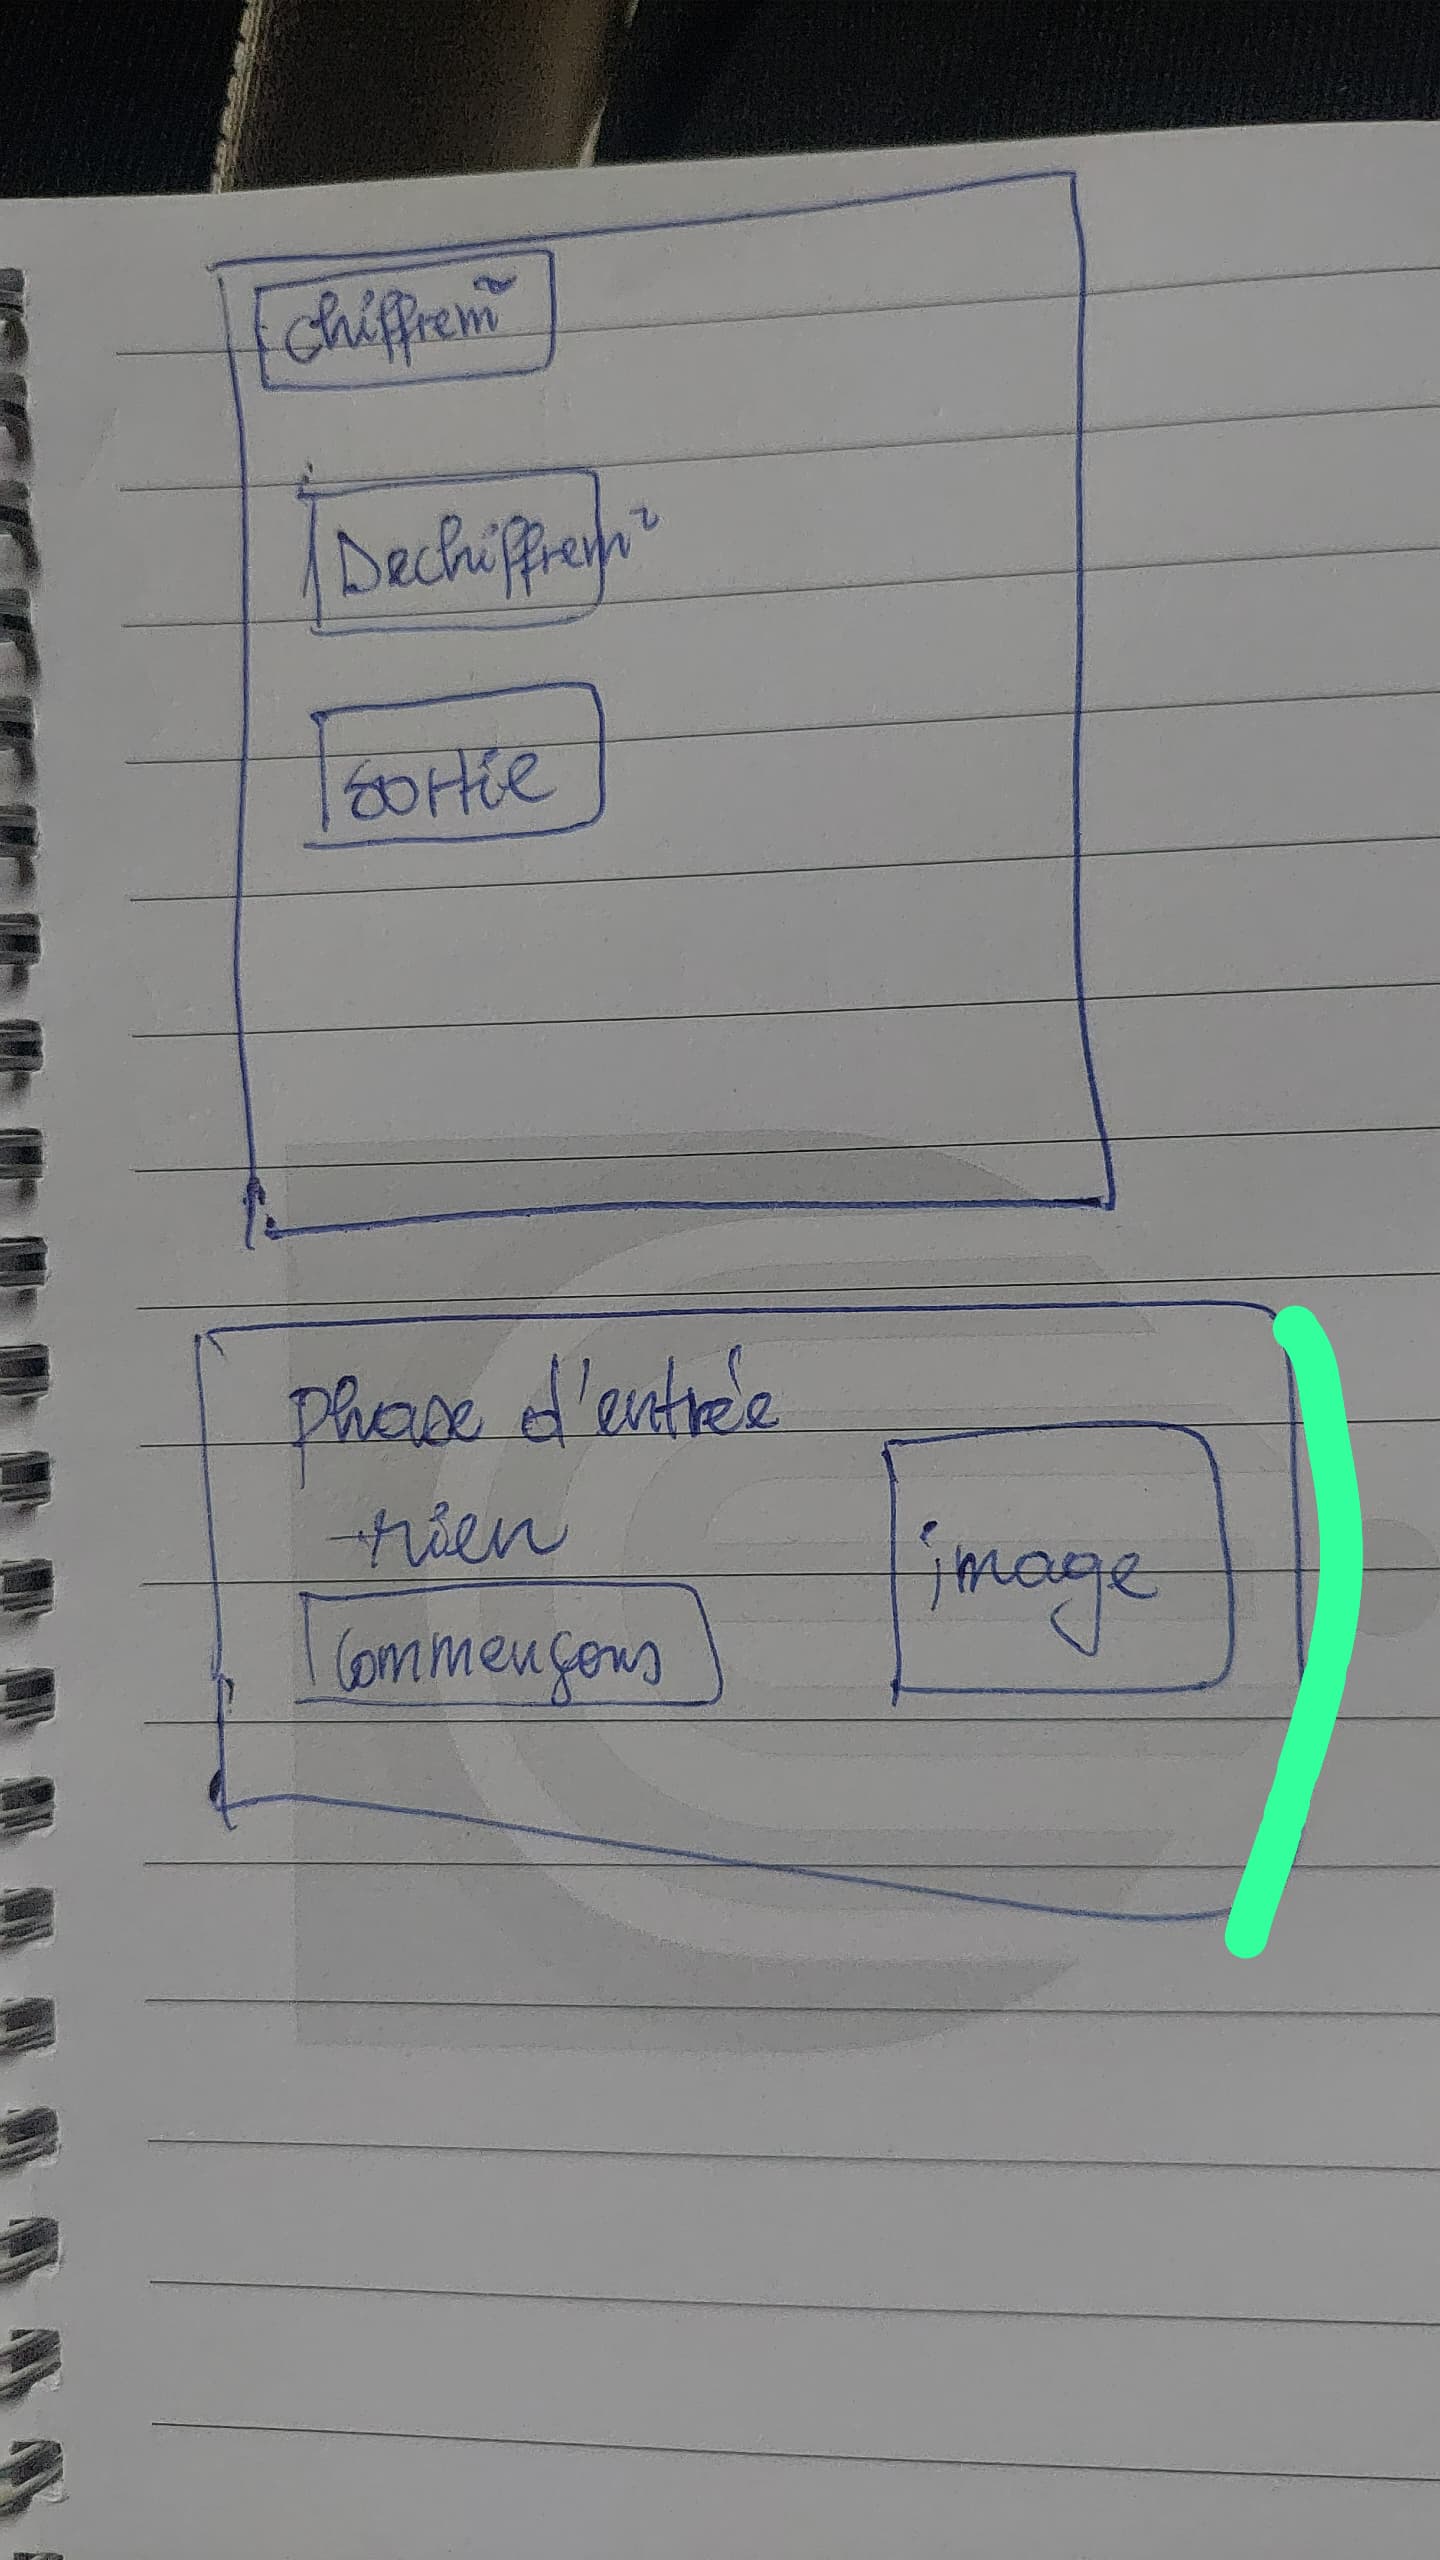 chiffrem~
Dechiffrem~
sortie
phrase d'entrée
rien
Commençons
image